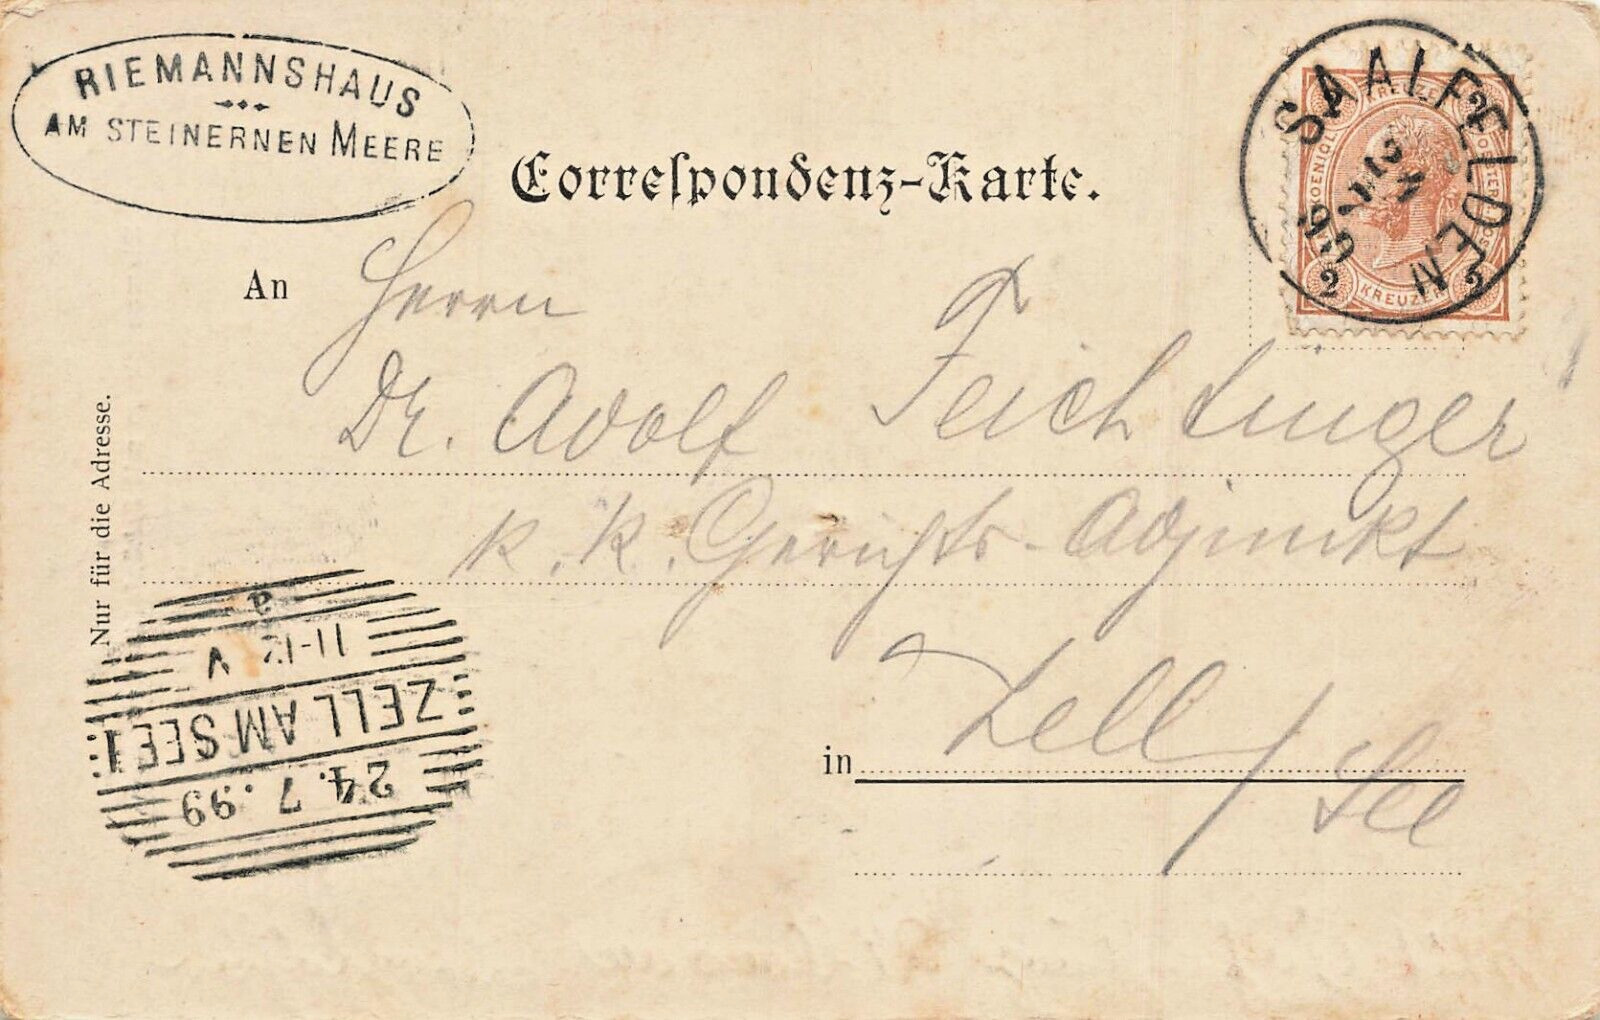 RIEMANNSHAUS
AM STEINERNEN MEERE
Correspondenz-Karte.
SAALFELDEN
KREUZER
2 2
2 KREUZER 2
An Herrn
Dr. Adolf Feichtinger
k. k. Gerichts-Adjunkt
in Zell / See
Nur für die Adresse.
24. 7. 99
ZELL AM SEE 1
11-12 V
a